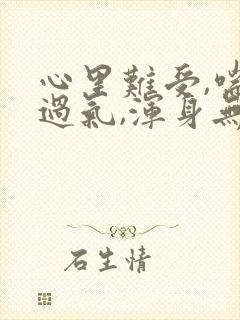 心里難受,喘
過氣,渾身無
石生情